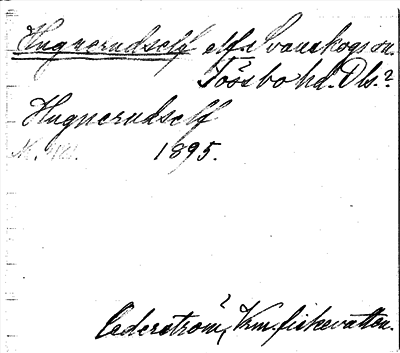 Hugnerudself elf. Svanskogs sn.
Tössbo hd. Dls.?
Hugnerudself
1895.
Cederström, Vrm. fiskevatten.